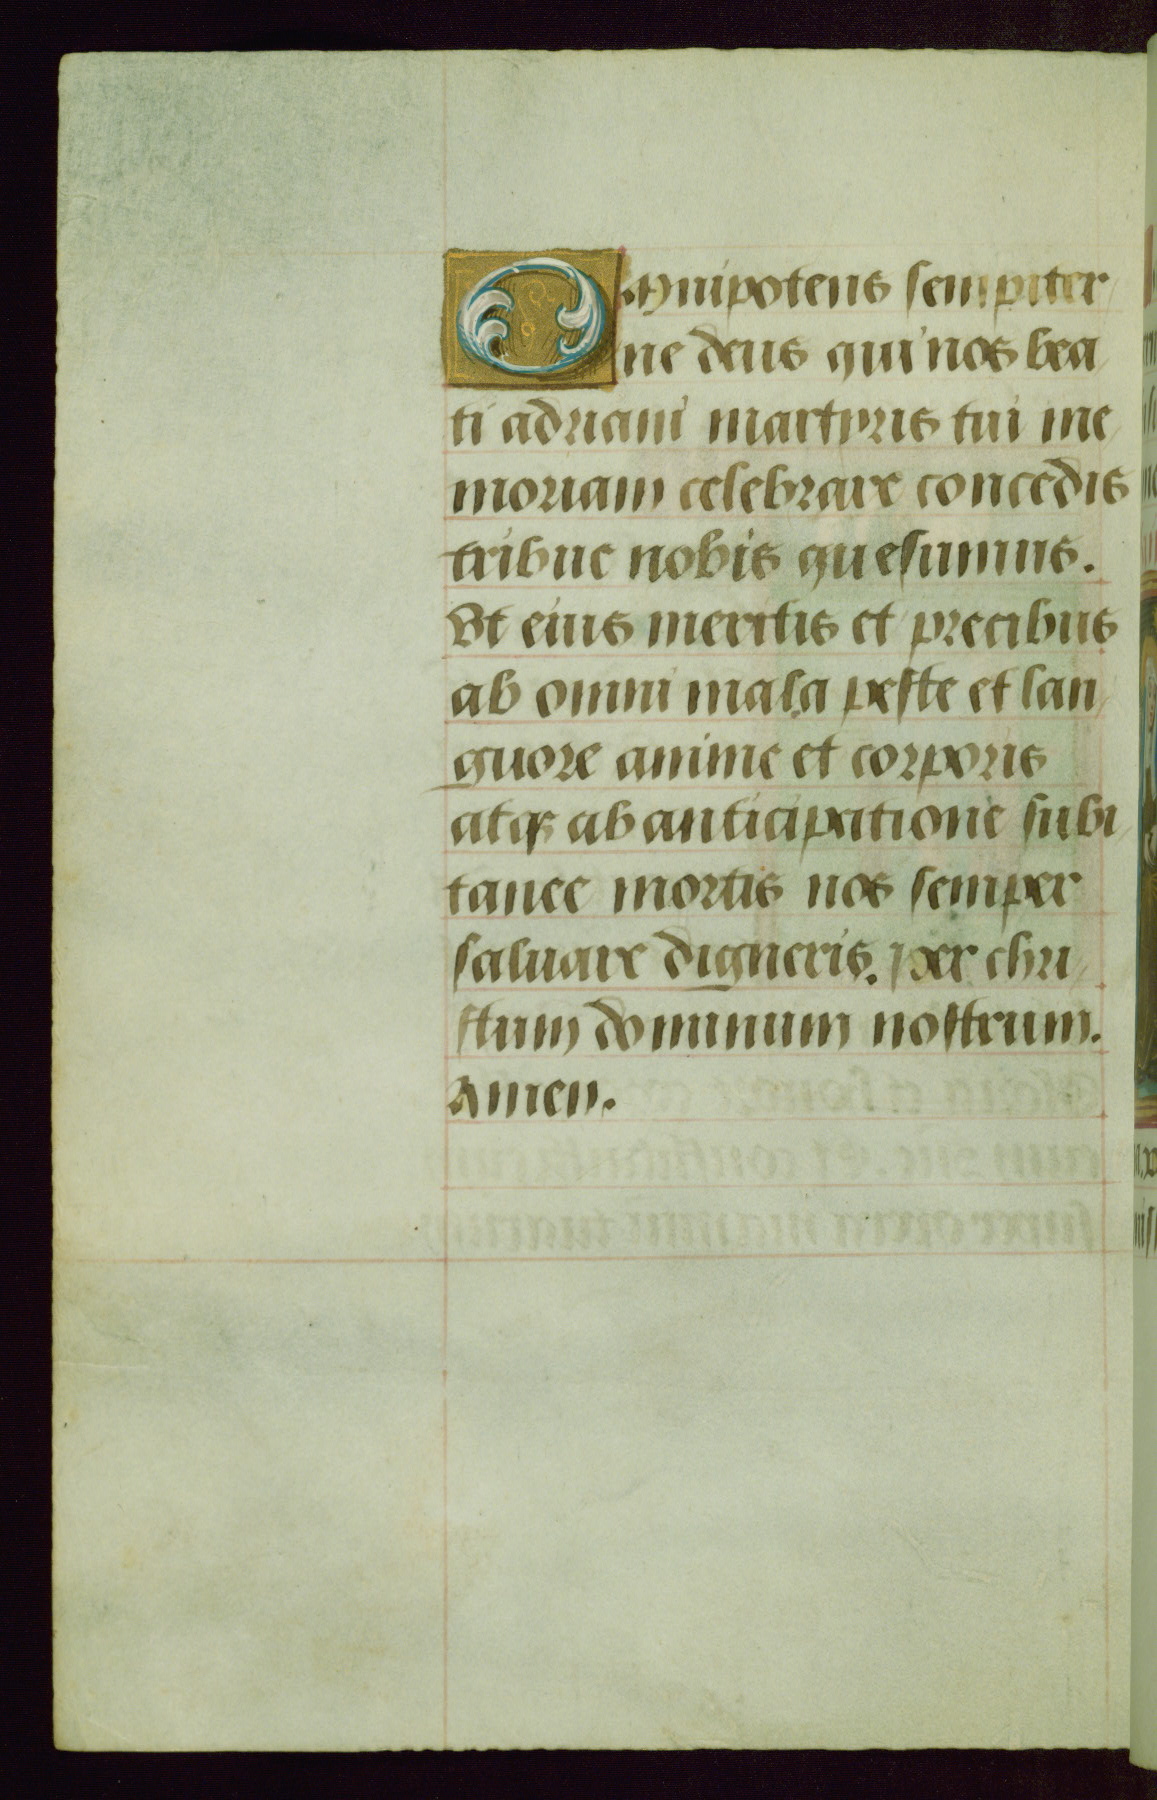 Omnipotens sempiter
ne deus qui nos bea
ti adriani martyris tui me
moriam celebrare concedis
tribue nobis quesumus.
Ut eius meritis et precibus
ab omni mala peste et lan
guore anime et corporis
atqꝫ ab anticipatione subi
tanee mortis nos semper
saluare digneris. per chri
stum dominum nostrum.
Amen.